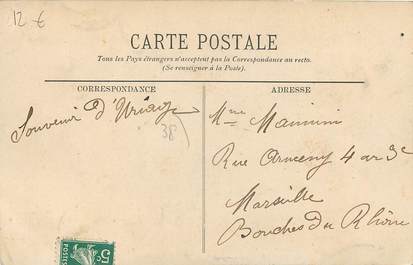 12 €
CARTE POSTALE
Tous les Pays étrangers n'acceptent pas la Correspondance au recto.
(Se renseigner à la Poste).
CORRESPONDANCE
ADRESSE
Souvenir d'Uriage
38
Mme
Rue 4
Marseille
Bouches du Rhône
5c
POSTES